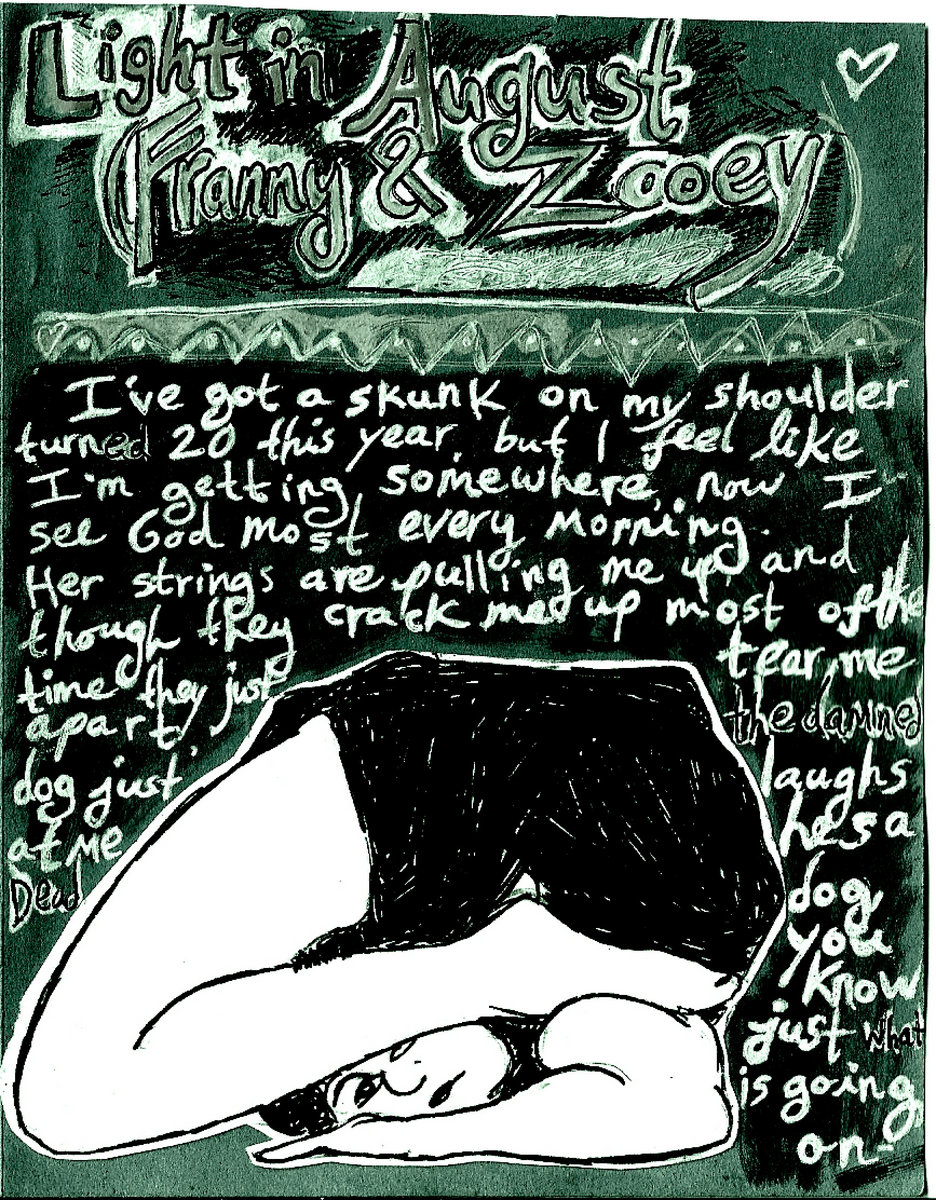 Light in August
(Franny & Zooey)
I've got a skunk on my shoulder
turned 20 this year, but I feel like
I'm getting somewhere, now I
see God most every morning.
Her strings are pulling me up, and
though they crack me up most of the
time they just tear me
apart, the damned
dog just laughs
at me he's a
Dead dog
you
know
just what
is going
on-